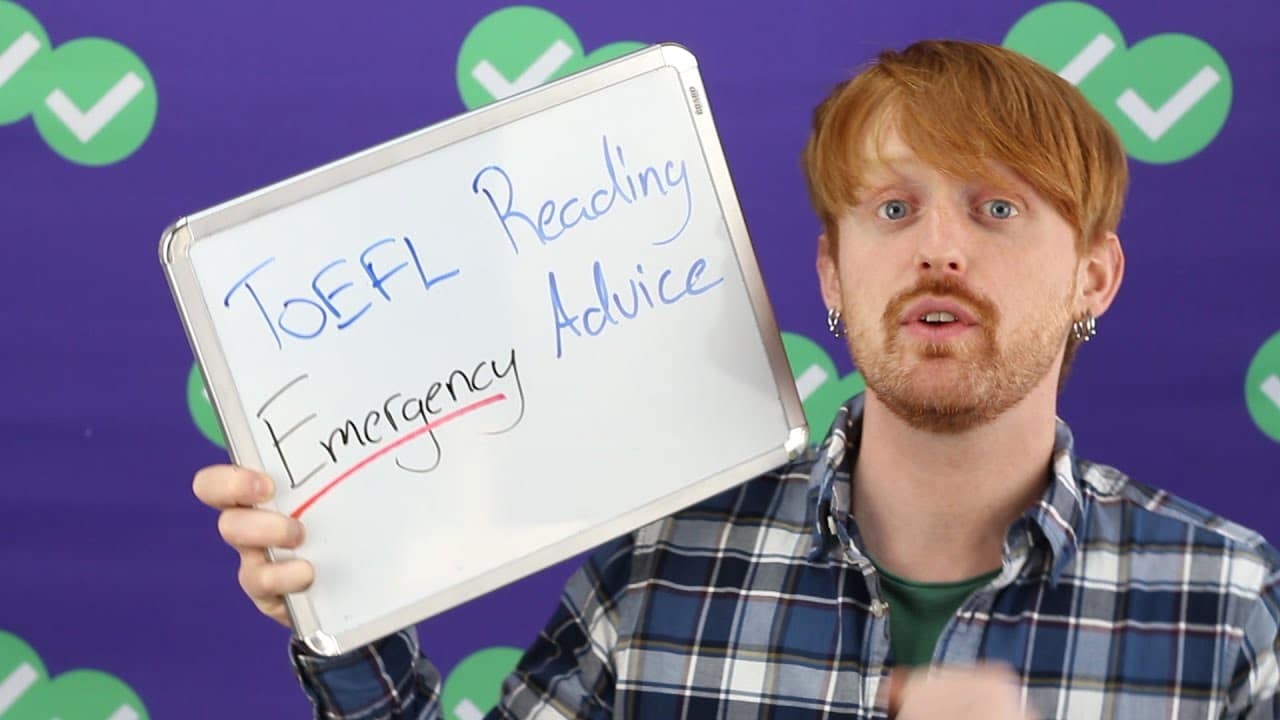 TOEFL Reading
Advice
Emergency